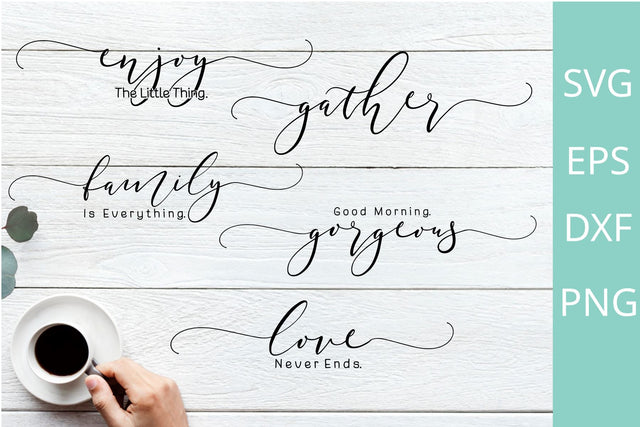 enjoy
The Little Thing.
gather
family
Is Everything.
Good Morning.
gorgeous
love
Never Ends.
SVG
EPS
DXF
PNG